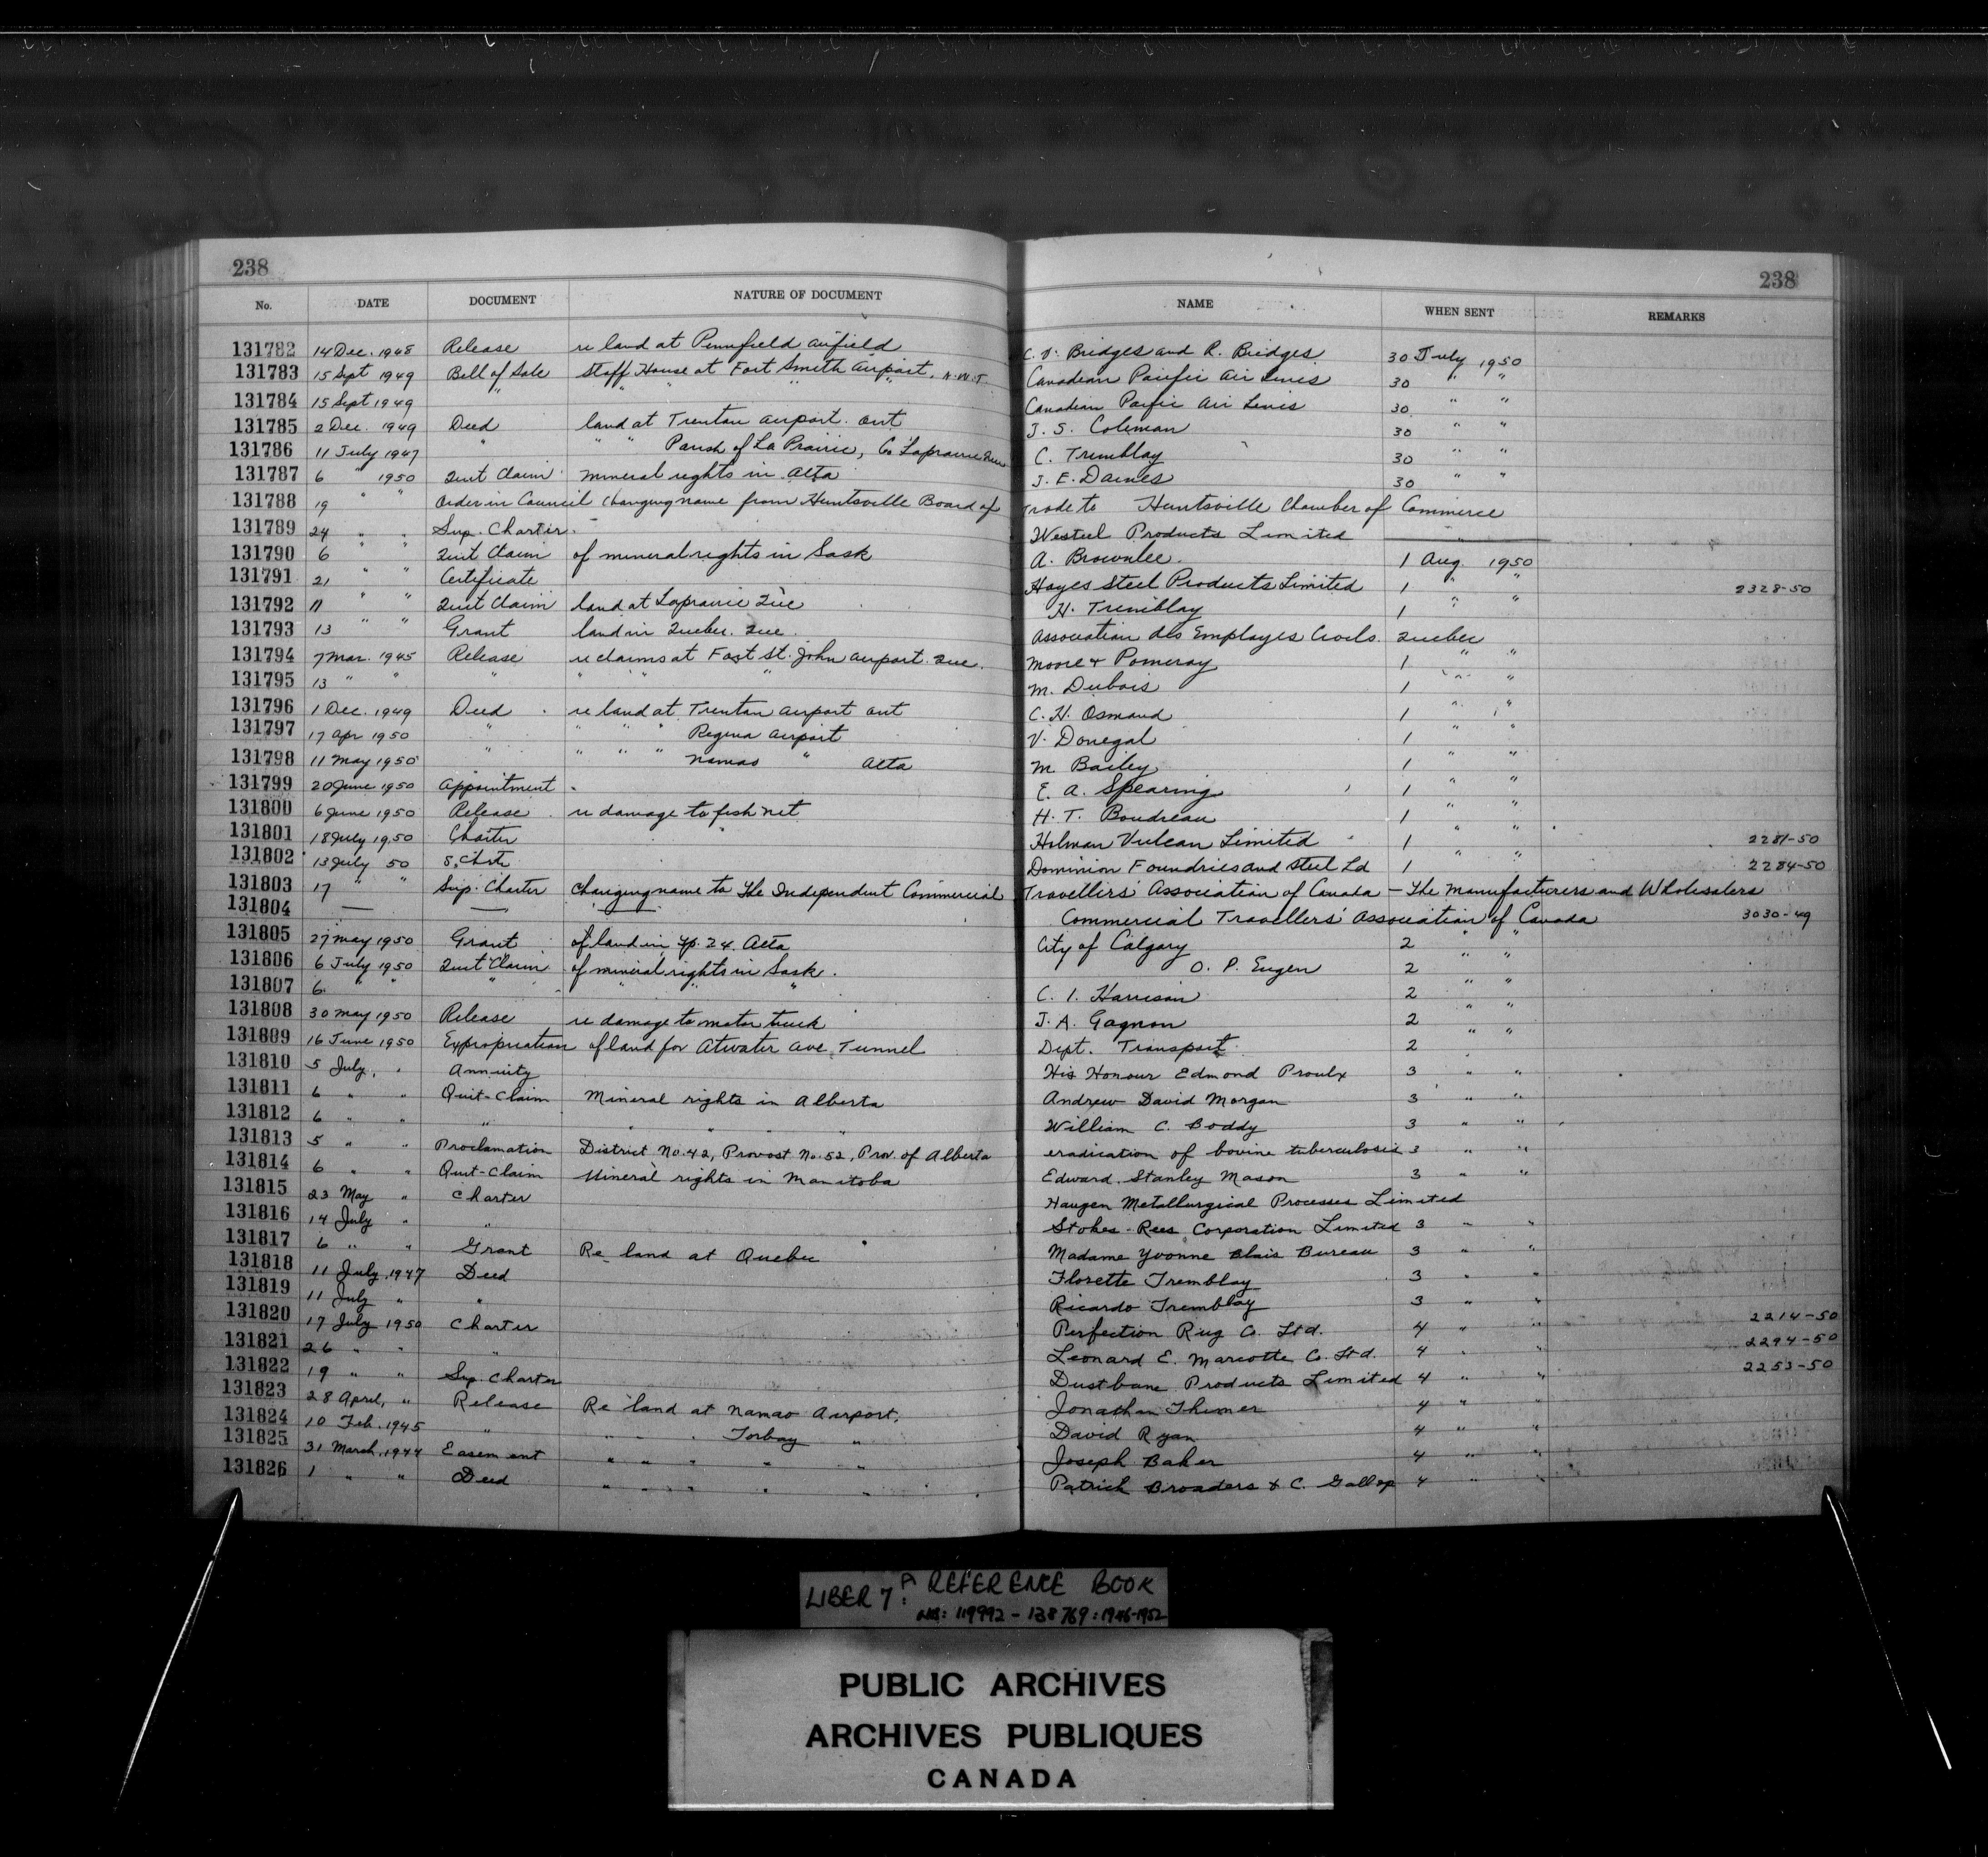 238
238
No. DATE DOCUMENT NATURE OF DOCUMENT NAME WHEN SENT REMARKS
131782 14 Dec. 1948 Release re land at Pennfield airfield C. V. Bridges and R. Bridges 30 July 1950
131783 15 Sept 1949 Bill of Sale Staff House at Fort Smith Airport, N.W.T. Canadian Pacific Air Lines 30 " "
131784 15 Sept 1949 " " " " " Canadian Pacific Air Lines 30 " "
131785 2 Dec. 1949 Deed land at Trenton airport. Ont J. S. Coleman 30 " "
131786 11 July 1947 " " " Parish of La Prairie, Co Laprairie Que C. Tremblay 30 " "
131787 6 " 1950 Quit Claim mineral rights in Alta J. E. Daines 30 " "
131788 19 " " Order in Council changing name from Huntsville Board of Trade to Huntsville Chamber of Commerce
131789 24 " " Sup. Charter Westeel Products Limited "
131790 6 " " Quit Claim of mineral rights in Sask A. Brownlee. 1 Aug. 1950
131791 21 " " Certificate Hayes Steel Products Limited 1 " " 2328-50
131792 11 " " Quit Claim land at Laprairie Que H. Tremblay 1 " "
131793 13 " " Grant land in Quebec. Que. Association des Employes Civils. Quebec
131794 7 Mar. 1945 Release re claims at Fort St. John airport. Que. Moore & Pomeroy 1 " "
131795 13 " " " " " " " M. Dubois 1 " "
131796 1 Dec. 1949 Deed re land at Trenton airport Ont C. H. Osmand 1 " "
131797 17 Apr 1950 " " " " Regina airport V. Donegal 1 " "
131798 11 May 1950 " " " " Namao " Alta M Bailey 1 " "
131799 20 June 1950 Appointment E. A. Spearing 1 " "
131800 6 June 1950 Release re damage to fish net H. T. Boudreau 1 " "
131801 18 July 1950 Charter Holman Vulcan Limited 1 " " 2281-50
131802 13 July 50 S. Chtr Dominion Foundries and Steel Ld 1 " " 2284-50
131803 17 " " Sup. Charter Changing name to The Independent Commercial Travellers' Association of Canada — The Manufacturers and Wholesalers
131804 — — — Commercial Travellers' Association of Canada 3030-49
131805 27 May 1950 Grant of land in Tp. 24. Alta City of Calgary 2 " "
131806 6 July 1950 Quit Claim of mineral rights in Sask. O. P. Eugen 2 " "
131807 6 " " " " " " C. I. Harrison 2 " "
131808 30 May 1950 Release re damage to motor truck J. A. Gagnon 2 " "
131809 16 June 1950 Expropriation of land for Atwater Ave. Tunnel Dept. Transport 2 " "
131810 5 July, " Annuity His Honour Edmond Proulx 3 " "
131811 6 " " Quit-Claim Mineral rights in Alberta Andrew David Morgan 3 " "
131812 6 " " " " " " " William C. Boddy 3 " "
131813 5 " " Proclamation District No. 42, Provost No. 52, Prov. of Alberta eradication of bovine tuberculosis 3 " "
131814 6 " " Quit-Claim Mineral rights in Manitoba Edward Stanley Mason 3 " "
131815 23 May " Charter Haugen Metallurgical Processes Limited
131816 14 July " " Stokes-Rees Corporation Limited 3 " "
131817 6 " " Grant Re land at Quebec Madame Yvonne Blais Bureau 3 " "
131818 11 July 1947 Deed Florette Tremblay 3 " "
131819 11 July " " Ricardo Tremblay 3 " "
131820 17 July 1950 Charter Perfection Rug Co. Ltd. 4 " " 2214-50
131821 26 " " " Leonard E. Marcotte Co. Ltd. 4 " " 2294-50
131822 19 " " Sup. Charter Dustbane Products Limited 4 " " 2253-50
131823 28 April, " Release Re land at Namao Airport. Jonathan 4 " "
131824 10 Feb. 1945 " " " " Torbay " David Ryan 4 " "
131825 31 March, 1944 Easement " " " " " Joseph Baker 4 " "
131826 1 " " Deed " " " " " Patrick Broaders & C. Gallop 4 " "
LIBER 7: A REFERENCE BOOK
NOS: 119992 - 138769: 1946-1952
PUBLIC ARCHIVES
ARCHIVES PUBLIQUES
CANADA